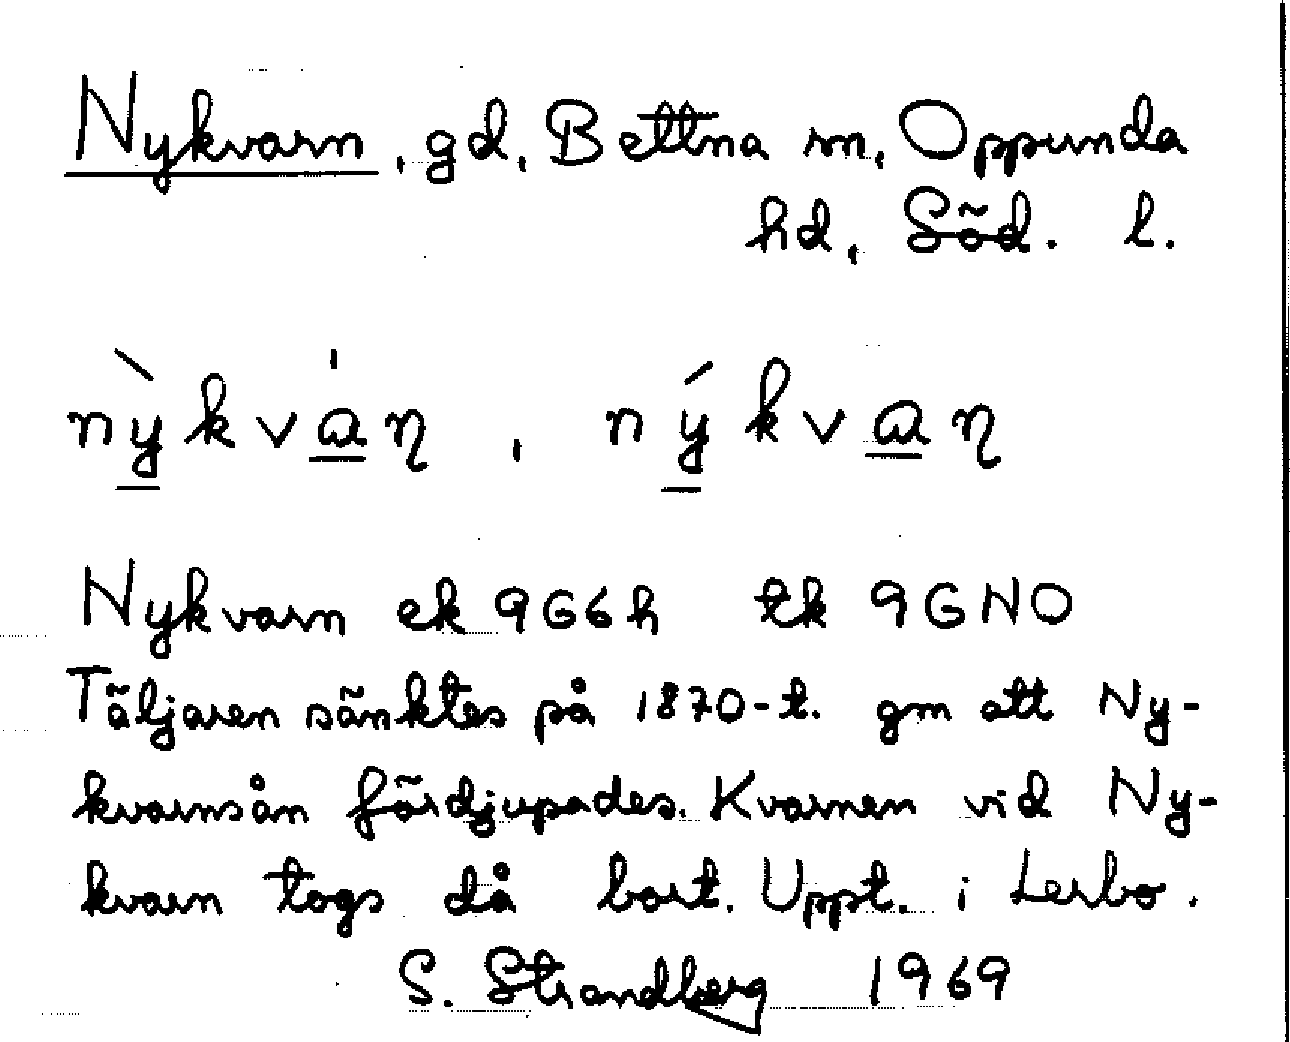 Nykvarn, gd, Bettna sn, Oppunda
hd, Söd. l.
nỳkvàɳ, nýkvaɳ
Nykvarn ek 9G6h tk 9GNO
Täljaren sänktes på 1870-t. gm att Ny-
kvarnsån fördjupades. Kvarnen vid Ny-
kvarn togs då bort. Uppt. i Lerbo.
S. Strandberg 1969